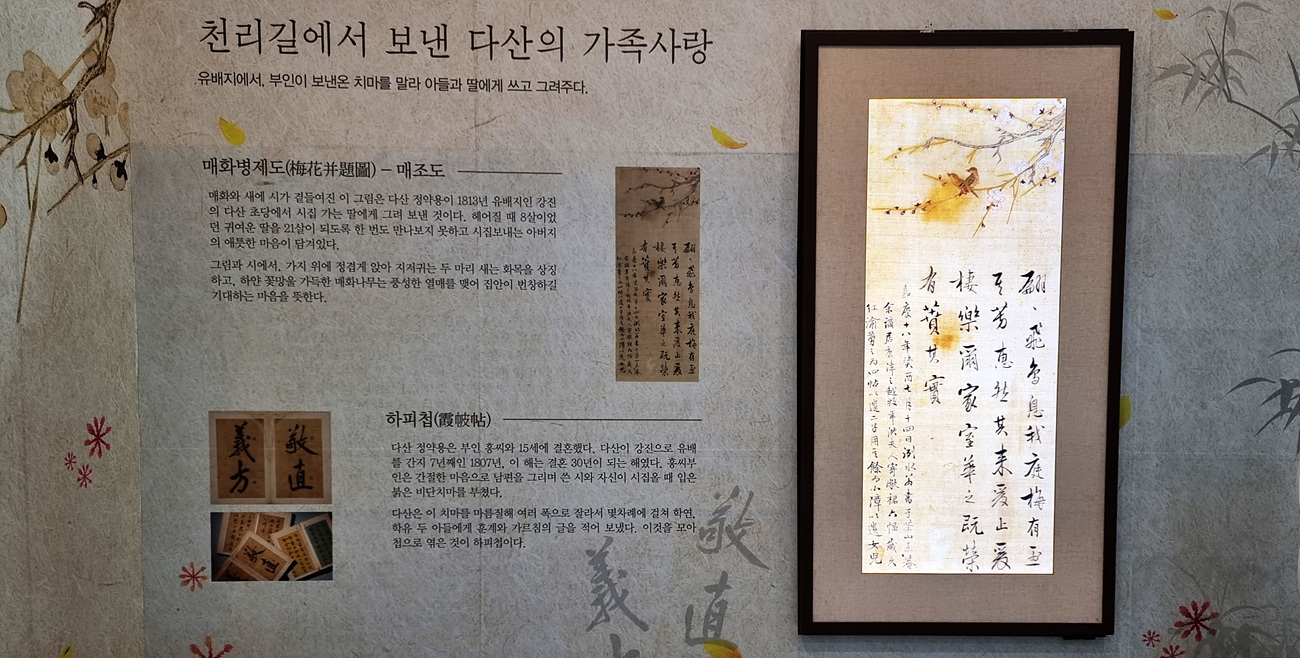 천리길에서 보낸 다산의 가족사랑
유배지에서, 부인이 보낸온 치마를 말라 아들과 딸에게 쓰고 그려주다.
매화병제도(梅花并題圖) – 매조도
매화와 새에 시가 곁들여진 이 그림은 다산 정약용이 1813년 유배지인 강진
의 다산 초당에서 시집 가는 딸에게 그려 보낸 것이다. 헤어질 때 8살이었
던 귀여운 딸을 21살이 되도록 한 번도 만나보지 못하고 시집보내는 아버지
의 애틋한 마음이 담겨있다.
그림과 시에서, 가지 위에 정겹게 앉아 지저귀는 두 마리 새는 화목을 상징
하고, 하얀 꽃망울 가득한 매화나무는 풍성한 열매를 맺어 집안이 번창하길
기대하는 마음을 뜻한다.
하피첩(霞帔帖)
다산 정약용은 부인 홍씨와 15세에 결혼했다. 다산이 강진으로 유배
를 간지 7년째인 1807년, 이 해는 결혼 30년이 되는 해였다. 홍씨부
인은 간절한 마음으로 남편을 그리며 쓴 시와 자신이 시집올 때 입은
붉은 비단치마를 부쳤다.
다산은 이 치마를 마름질해 여러 폭으로 잘라서 몇차례에 걸쳐 학연,
학유 두 아들에게 훈계와 가르침의 글을 적어 보냈다. 이것을 모아
첩으로 엮은 것이 하피첩이다.
敬直
義方
敬直
義
翩、飛鳥息我庭梅有
其芳惠然其來爰止爰
棲樂爾家室華之旣榮
有蕡其實